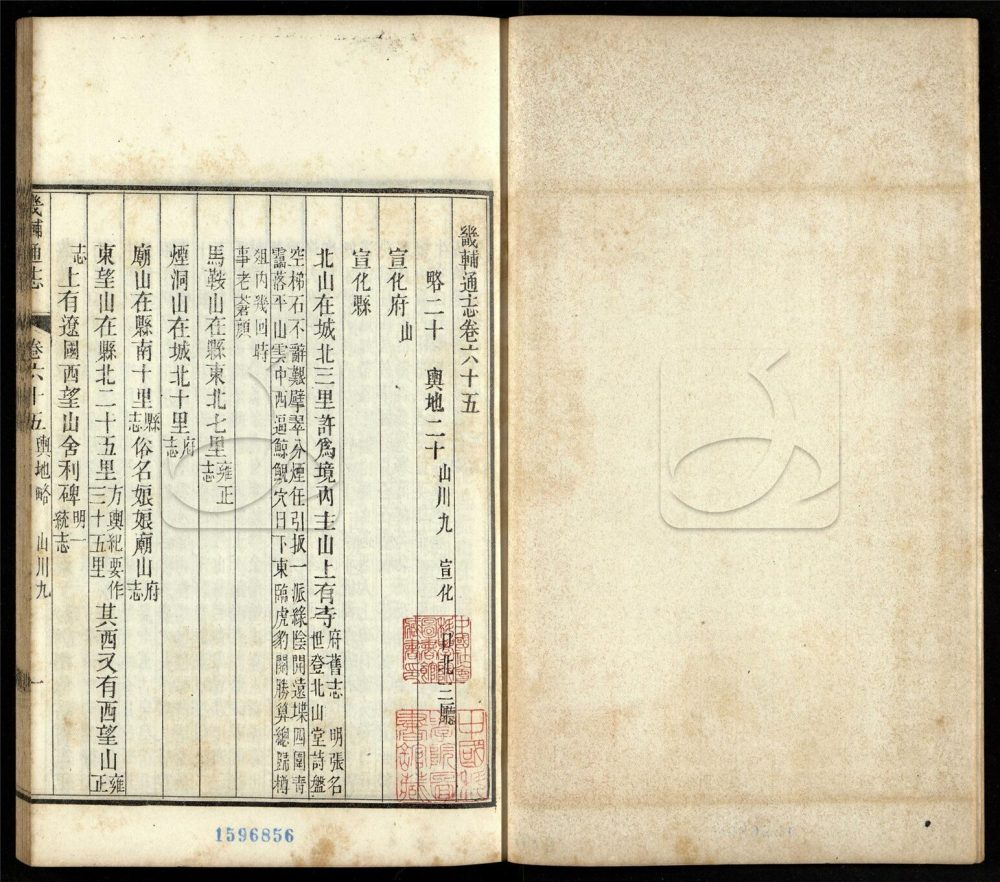 畿輔通志卷六十五
略二十　輿地二十　山川九　宣化　口北三廳
宣化府山
宣化縣
北山在城北三里許爲境內主山上有寺府舊志　明張名世登北山堂詩盤
空梯石不辭艱壁翠分煙任引扳一派綠陰開遠堞四圍青
靄落平山雲中西逼鯨鯢穴日下東臨虎豹關勝算總歸樽
俎內幾回時事老蒼顏
馬鞍山在縣東北七里雍正志
煙洞山在城北十里府志
廟山在縣南十里縣志俗名娘娘廟山府志
東望山在縣北二十五里方輿紀要作三十五里其西又有西望山雍正
志上有遼國西望山舍利碑明一統志
畿輔通志　卷六十五　輿地略　山川九　一
1596856